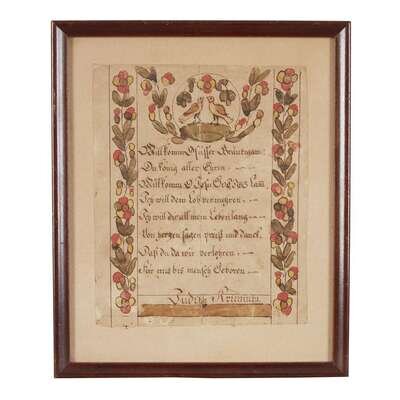 Willkomm O süsser Bräutigam
Du König aller Ehrn
Willkomm O Jesu Gottes Lam
Ich will dein Lob vermehren
Ich will dir all mein Lebenlang
Von hertzen sagen preiß und danck
Daß du da wir verlohren
Für uns bis mensch Geboren
Judith